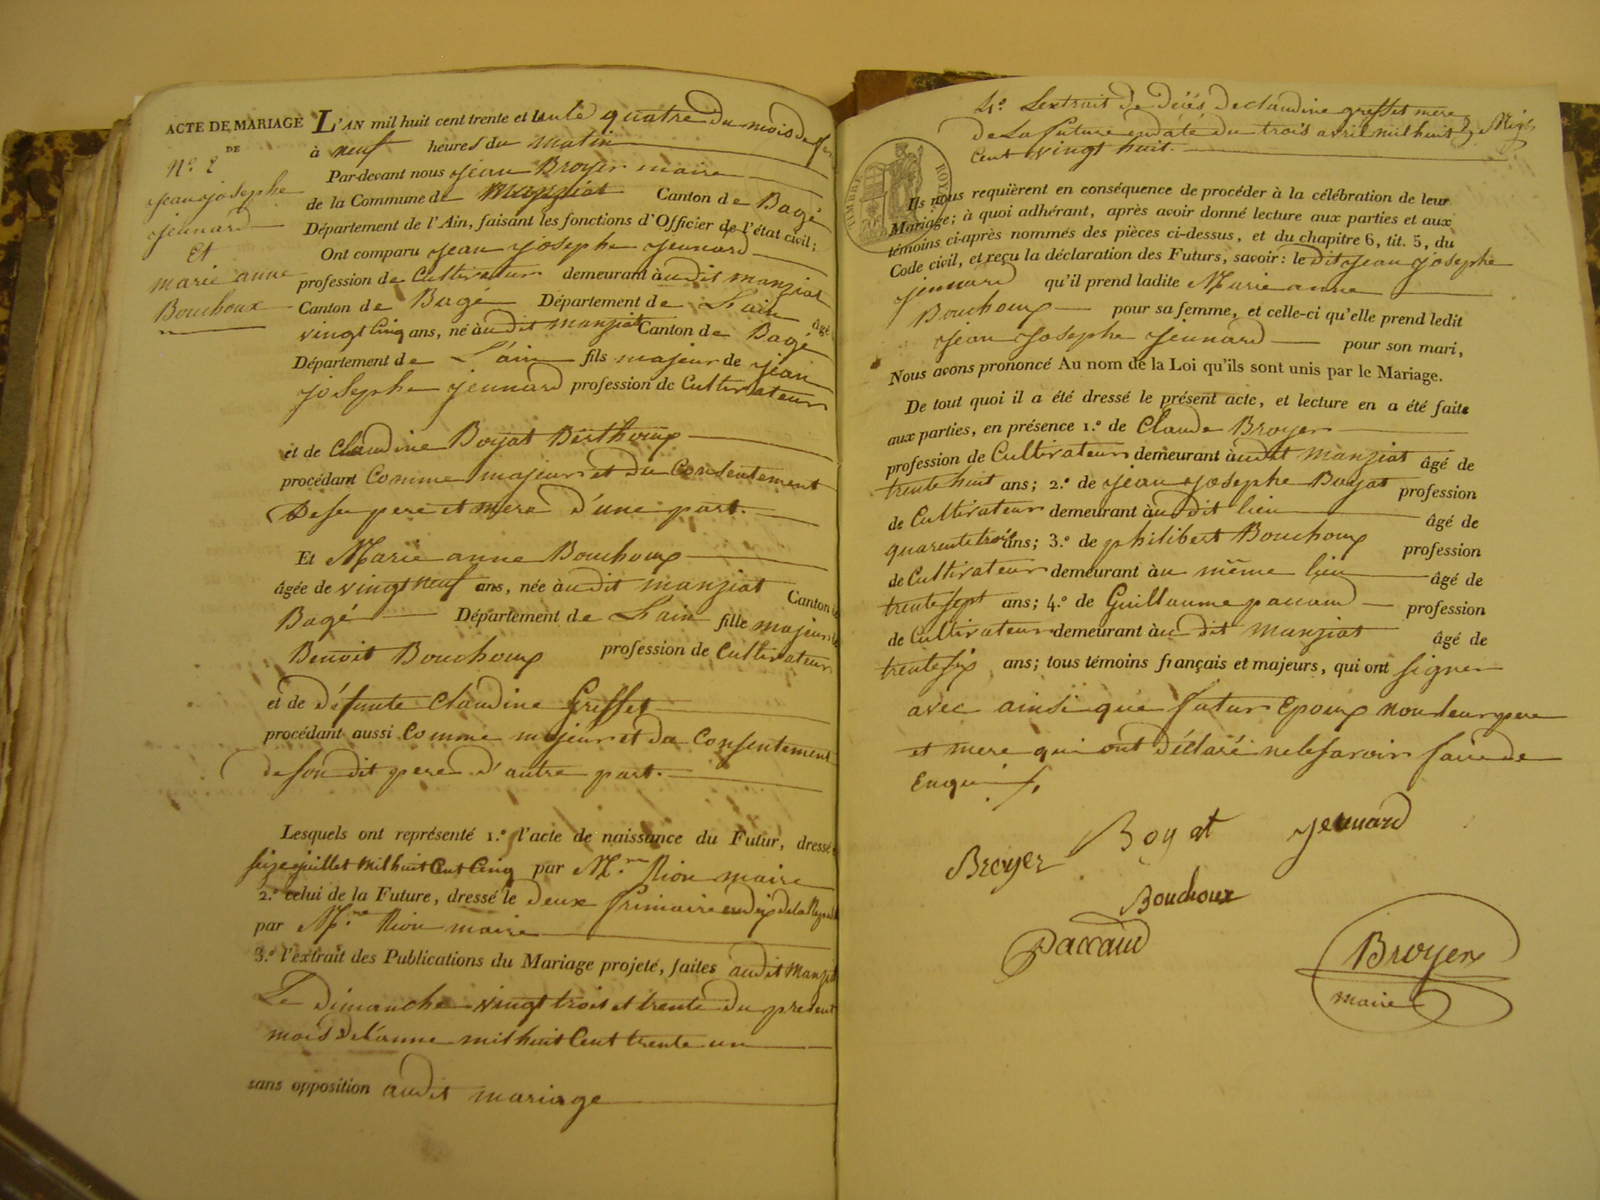 ACTE DE MARIAGE
DE
N.º 2
jean josephe
jennard
Et
marie anne
Bouchoux
L'AN mil huit cent trente et un le quatre du mois de
à neuf heures du matin
Par-devant nous jean Broyer maire
de la Commune de Manziat Canton de Bagé
Département de l'Ain, faisant les fonctions d'Officier de l'état civil;
Ont comparu jean josephe jennard
profession de Cultivateur demeurant audit manziat
Canton de Bagé Département de L'ain âgé
vingt cinq ans, né audit manziat Canton de Bagé
Département de L'ain fils majeur de jean
josephe jennard profession de Cultivateur
et de Claudine Boyat Besthoux
procédant Comme majeur et du Consentement
De ses pere et mere d'une part.
Et Marie anne Bouchoux
âgée de vingt neuf ans, née audit manziat Canton de
Bagé Département de L'ain fille majeure de
Benoit Bouchoux profession de Cultivateur
et de défunte Claudine Greffet
procédant aussi Comme majeur et du Consentement
de son dit pere d'autre part.
Lesquels ont représenté 1.º l'acte de naissance du Futur, dressé
seize juillet mil huit Cent Cinq par M.r Rion maire
2.º celui de la Future, dressé le deux frimaire an dix de la
par M.re Rion maire
3.º l'extrait des Publications du Mariage projeté, faites audit Manziat
Le dimanche vingt trois et trente du present
mois de l'anne mil huit Cent trente un
sans opposition audit mariage
4.º Lextrait de décés de claudine greffet mere
de La future en daté du trois avril mil huit
Cent vingt huit.
TIMBRE ROYAL
Ils nous requièrent en conséquence de procéder à la célébration de leur
Mariage; à quoi adhérant, après avoir donné lecture aux parties et aux
témoins ci-après nommés des pièces ci-dessus, et du chapitre 6, tit. 5, du
Code civil, et reçu la déclaration des Futurs, savoir: le dit jean josephe
jennard qu'il prend ladite Marie anne
Bouchoux pour sa femme, et celle-ci qu'elle prend ledit
jean josephe jennard pour son mari,
Nous avons prononcé Au nom de la Loi qu'ils sont unis par le Mariage.
De tout quoi il a été dressé le présent acte, et lecture en a été faite
aux parties, en présence 1.º de Claude Broyer
profession de Cultivateur demeurant audit manziat âgé de
trente huit ans; 2.º de jean josephe Boyat profession
de Cultivateur demeurant au dit lieu âgé de
quarente trois ans; 3.º de philibert Bouchoux profession
de Cultivateur demeurant au même lieu âgé de
trente sept ans; 4.º de Guillaume paccaud profession
de Cultivateur demeurant au dit manziat âgé de
trente six ans; tous témoins français et majeurs, qui ont signer
avec ainsi que futur Epoux non leur pere
et mere qui ont déclaré ne le savoir faire de
Enquis
Broyer Boyat jennard
Bouchoux
Paccaud
Broyer
maire